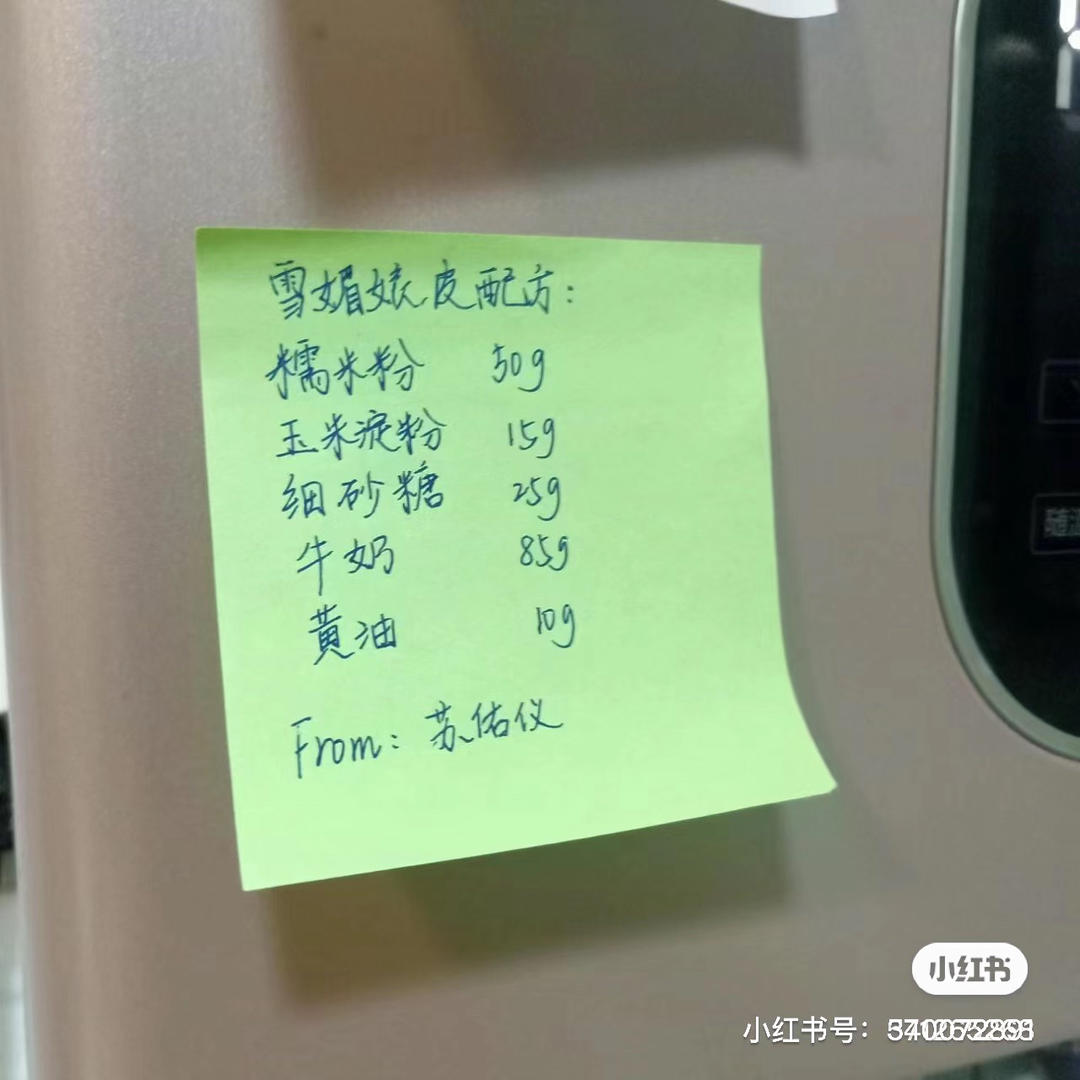 雪媚娘皮配方:
糯米粉 50g
玉米淀粉 15g
细砂糖 25g
牛奶 85g
黄油 10g
From: 苏佑仪
小红书
小红书号: